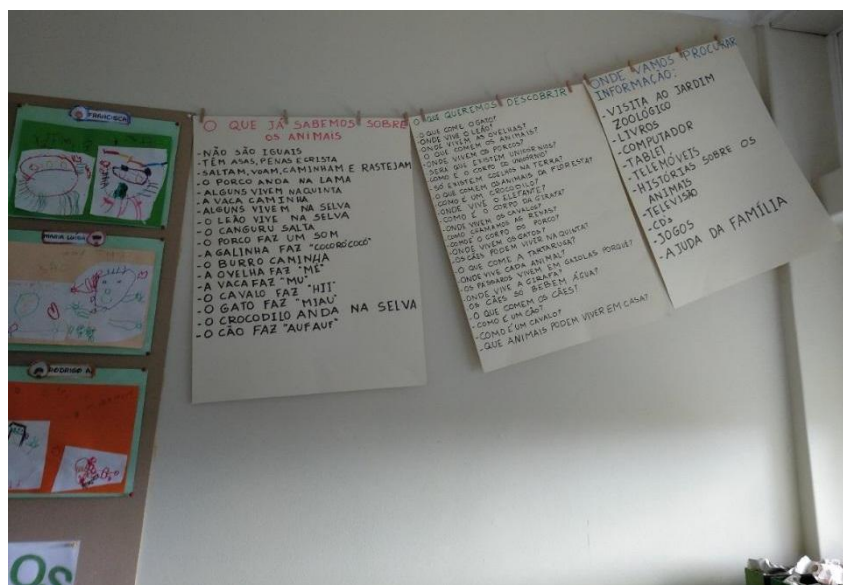 FRANCISCA
MARIA LUÍSA
RODRIGO A.
Os
O QUE JÁ SABEMOS SOBRE
OS ANIMAIS
-NÃO SÃO IGUAIS
-TÊM ASAS, PENAS E CRISTA
-SALTAM, VOAM, CAMINHAM E RASTEJAM
-O PORCO ANDA NA LAMA
-ALGUNS VIVEM NA QUINTA
-A VACA CAMINHA
-ALGUNS VIVEM NA SELVA
-O LEÃO VIVE NA SELVA
-O CANGURU SALTA
-O PORCO FAZ UM SOM
-A GALINHA FAZ "COCORÓCÓCÓ"
-O BURRO CAMINHA
-A OVELHA FAZ "MÉ"
-A VACA FAZ "MU"
-O CAVALO FAZ "HIJI"
-O GATO FAZ "MIAU"
-O CROCODILO ANDA NA SELVA
-O CÃO FAZ "AUF AUF"
O QUE QUEREMOS DESCOBRIR
-O QUE COME O GATO?
-ONDE VIVE O LEÃO?
-ONDE VIVEM AS OVELHAS?
-O QUE COMEM OS ANIMAIS?
-ONDE VIVEM OS PORCOS?
-SERÁ QUE EXISTEM UNICÓRNIOS?
-COMO É O CORPO DO UNICÓRNIO?
-SÓ EXISTEM COELHOS NA TERRA?
-O QUE COMEM OS ANIMAIS DA FLORESTA?
-COMO É UM CROCODILO?
-ONDE VIVE O ELEFANTE?
-COMO É O CORPO DA GIRAFA?
-ONDE VIVEM OS CAVALOS?
-COMO CHAMAMOS AS RENAS?
-COMO É O CORPO DO PORCO?
-ONDE VIVEM OS GATOS?
-OS CÃES PODEM VIVER NA QUINTA?
-O QUE COME A TARTARUGA?
-ONDE VIVE CADA ANIMAL?
-OS PÁSSAROS VIVEM EM GAIOLAS PORQUÊ?
-ONDE VIVE A GIRAFA?
-OS CÃES SÓ BEBEM ÁGUA?
-O QUE COMEM OS CÃES?
-COMO É UM CÃO?
-COMO É UM CAVALO?
-QUE ANIMAIS PODEM VIVER EM CASA?
ONDE VAMOS PROCURAR
INFORMAÇÃO:
-VISITA AO JARDIM
ZOOLÓGICO
-LIVROS
-COMPUTADOR
-TABLET
-TELEMÓVEIS
-HISTÓRIAS SOBRE OS
ANIMAIS
-TELEVISÃO
-CD's
-JOGOS
-AJUDA DA FAMÍLIA